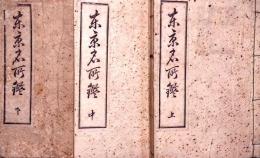 東京名所鑑 上
東京名所鑑 中
東京名所鑑 下